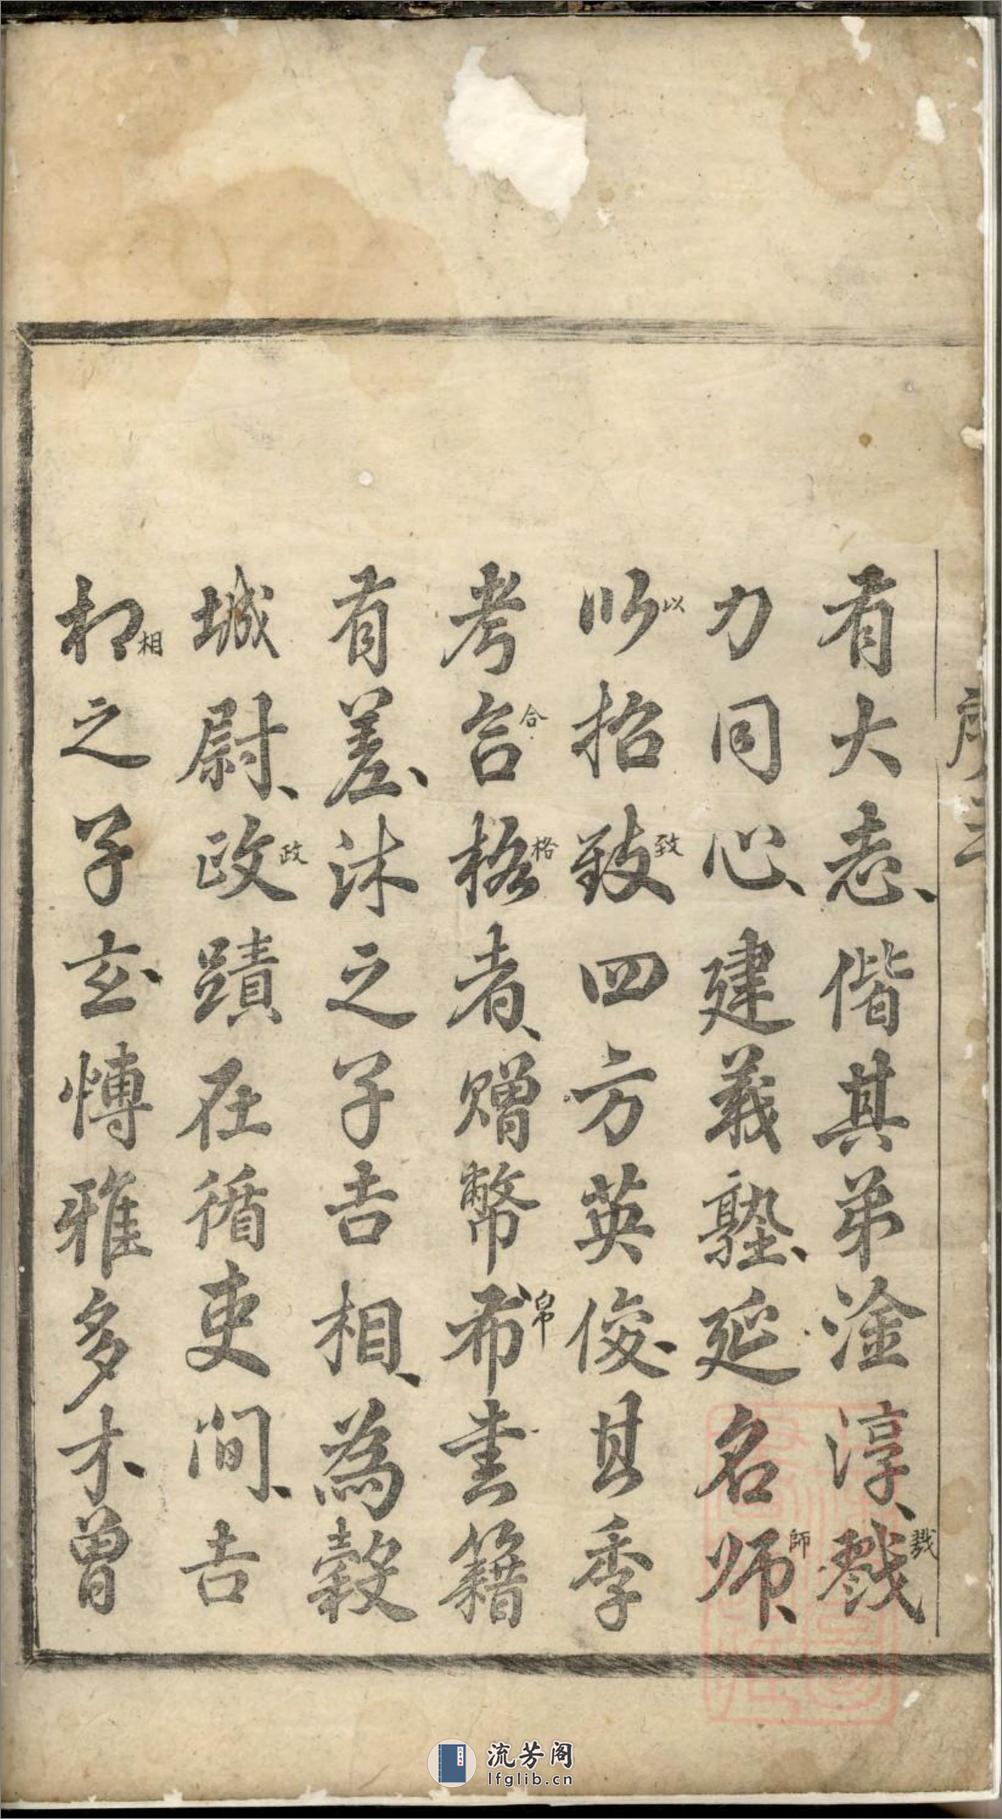 序 三
有大志、偕其弟淦淳、戮
力同心、建義塾、延名师、
以招致四方英俊、其季
考合格者、赠幣布書籍
有差、沐之子吉相、為穀
城尉、政蹟在循吏间、吉
相之子玄愽雅多才、曾
戮
師
以
致
合
格
帛
政
相
流芳阁
lfglib.cn